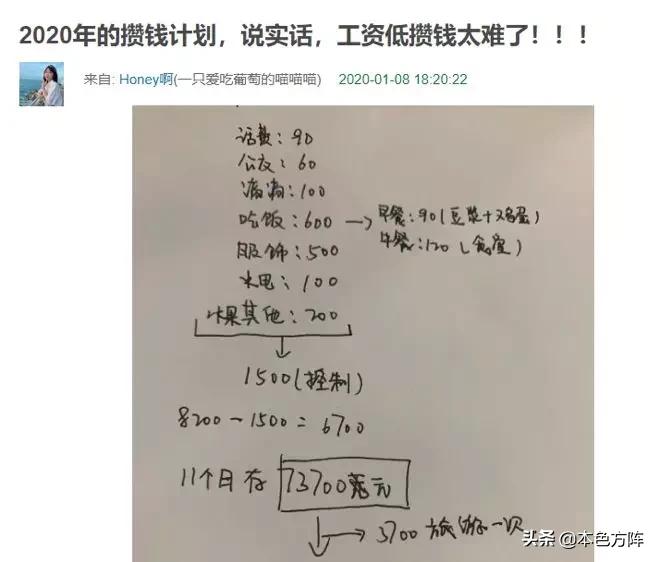 2020年的攒钱计划，说实话，工资低攒钱太难了！！！
来自: Honey啊(一只爱吃葡萄的喵喵喵) 2020-01-08 18:20:22
话费：90
公交：60
滴滴：100
吃饭：600 → 早餐：90（豆浆+鸡蛋）
午餐：120（食堂）
服饰：500
水电：100
水果其他：200
1500（控制）
8200－1500＝6700
11个月存 73700元
→ 3700 旅游一次
头条 @本色方阵